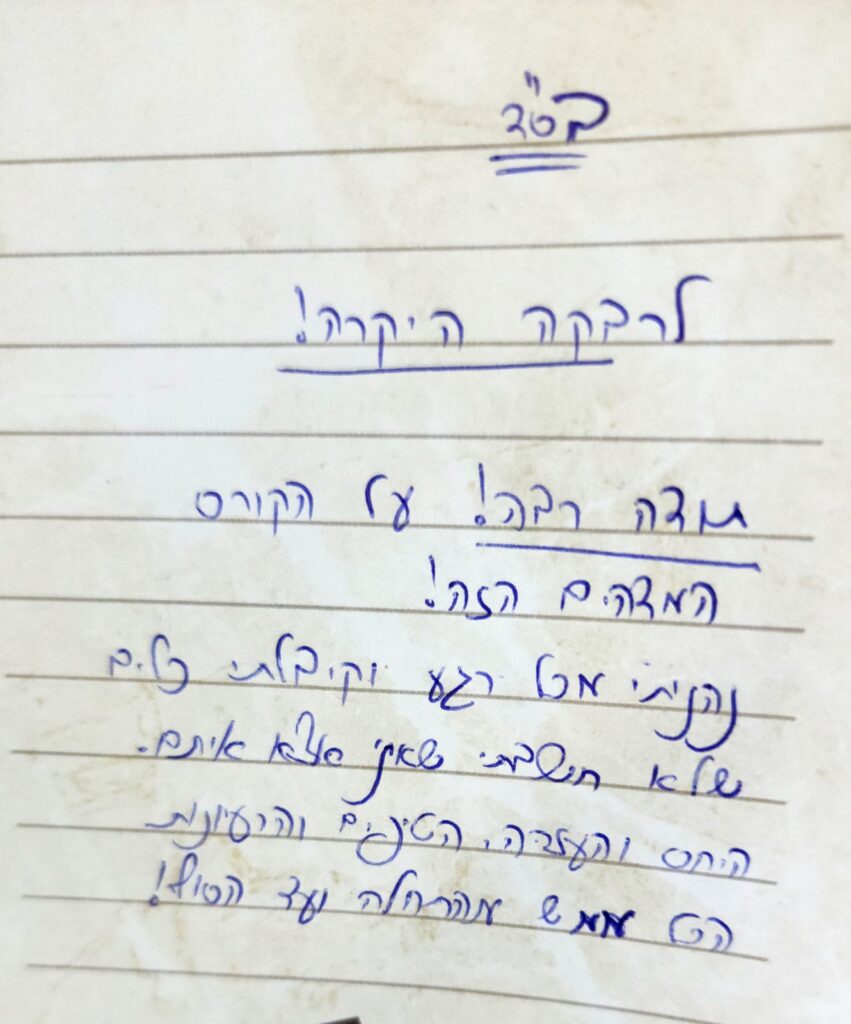 בס"ד
לרבקה היקרה!
תודה רבה! על הקורס
המדהים הזה!
נהניתי מכל רגע וקיבלתי כלים
שלא חישבתי שאני אצא איתם.
היחס והעזרה, הטיפים והרעיונות
הכל ממש מהתחלה ועד הסוף!